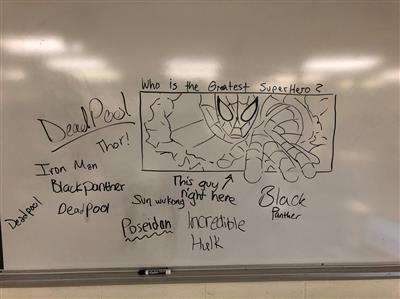 Who is the Greatest SuperHero?
DeadPool
Thor!
Iron Man
BlackPanther
Deadpool
Deadpool
This guy
right here
Sun wukong
Black
Panther
Poseidon
Incredible
Hulk